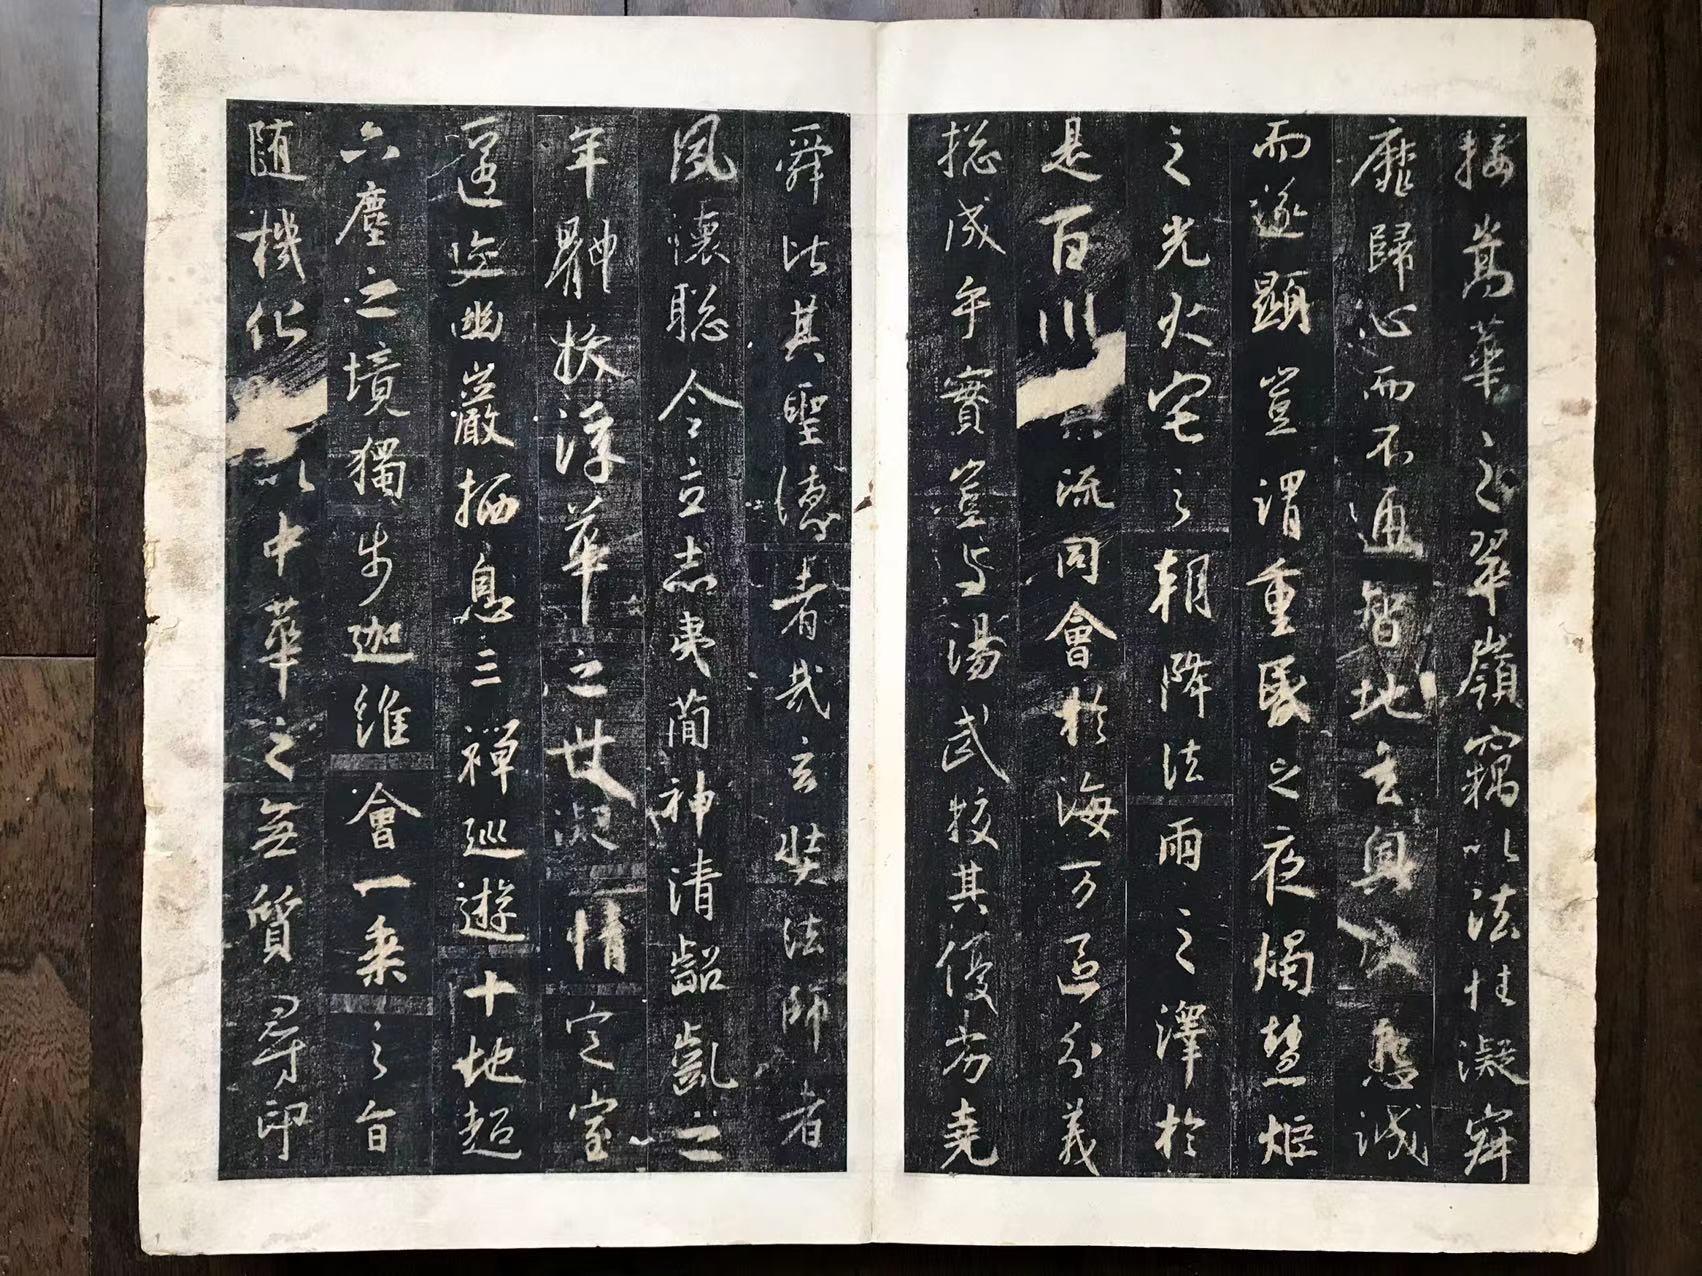 接嵩華之翠嶺竊以法性凝寂
靡歸心而不通智地玄奧感懇誠
而遂顯豈謂重昏之夜燭慧炬
之光火宅之朝降法雨之澤於
是百川流同會於海万區分義
揔成乎實豈与湯武校其優劣堯
舜比其聖德者哉玄奘法師者
夙懷聰令立志夷簡神清齠齔之
年體拔浮華之世凝情定室
匿迹幽巖栖息三禪巡遊十地超
六塵之境獨步迦維會一乘之旨
随機化以中華之無質尋印